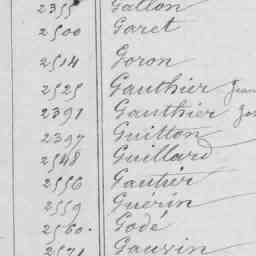 2355 Gallon
2500 Garet
2514 Goron
2525 Gauthier Jean
2391 Gauthier
2397 Guitton
2548 Guillard
2556 Gautier
2559 Guérin
2560. Godé
2571 Gauvin